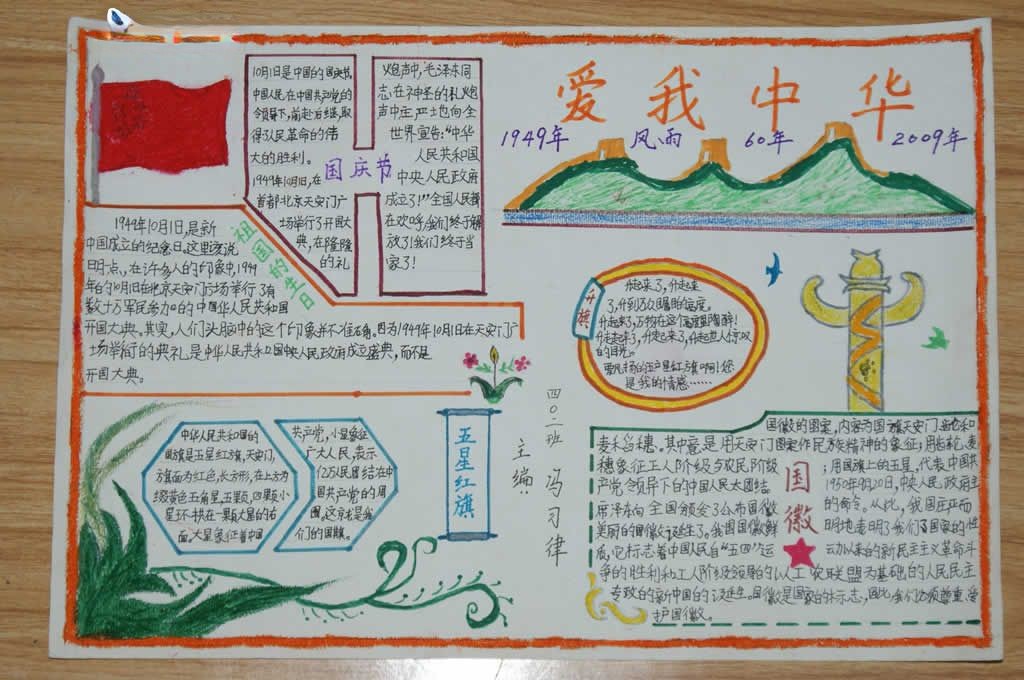 爱我中华
1949年 风雨 60年 2009年
10月1日是中国的国庆节,
中国人民在中国共产党的
领导下,前赴后继,取
得了人民革命的伟
大的胜利。
1949年10月1日,在
首都北京天安门广
场举行了开国大
典,在隆隆
的礼
国庆节
炮声中,毛泽东同
志在神圣的礼炮
声中庄严地向全
世界宣告:“中华
人民共和国
中央人民政府
成立了!”全国人民都
在欢呼,我们终于解
放了!我们终于当
家了!
祖国的生日
1949年10月1日,是新
中国成立的纪念日。这里应说
明一点,在许多人的印象中,1949
年的10月1日在北京天安门广场举行了有
数十万军民参加的中国华人民共和国
开国大典。其实,人们头脑中的这个印象并不准确。因为1949年10月1日在天安门广
场举行的典礼是中华人民共和国中央人民政府成立盛典,而不是
开国大典。
升旗
升起来了,升起来
了,升到万众瞩目的高度。
的目光。
是我的情感……
中华人民共和国的
国旗是五星红旗,
旗面为红色,长方形,在上方为
缀黄色五角星,五颗,四颗小
星环拱在一颗大星的右
面,大星象征着中国
共产党,小星象征
广大人民,表示
亿万人民团结在中
国共产党的周
围,这就是我
们的国旗。
五星红旗
四〇二班 冯习律
主编:
国徽
国徽的图案,内容为国旗、天安门、齿轮和
麦禾谷穗。其中意是用天安门图案作民族精神的象征;用齿轮、麦
穗象征工人阶级与农民阶级;用国旗上的五星,代表中国共
产党领导下的中国人民大团结。1950年9月20日,中央人民政府主
席泽东向全国颁发了公布国徽的命令。从此,我国庄严而
美丽的国徽诞生了。我国国徽鲜明地表明了我们国家的性
质,它标志着中国人民自“五四”运动以来的新民主主义革命斗
争的胜利和工人阶级领导的以工农联盟为基础的人民民主
专政的新中国的诞生。国徽是国家的标志,因此我们必须尊重爱
护国徽。